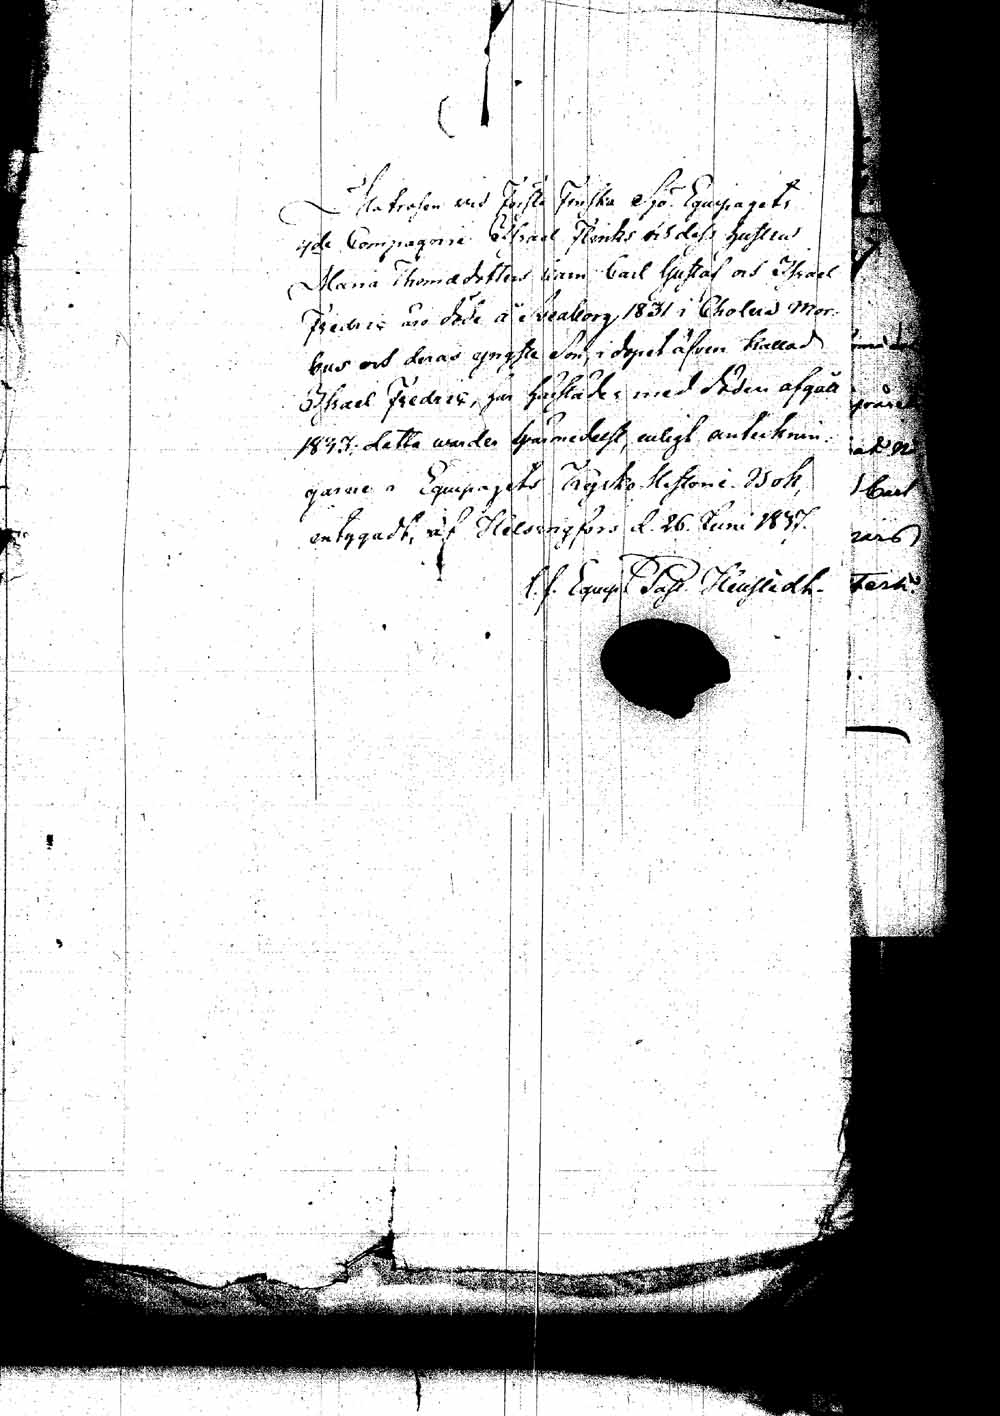 Matrosen vid Första Finska Sjö Equipagets
4de Compagnie Israel Flinks och dess hustrus
Maria Thomædotters barn Carl Gustaf och Israel
Fredric äro döde å Sveaborg 1831 i Cholera Mor-
bus och deras yngste Son, i dopet äfven kallad
Israel Fredric, har härstädes med döden afgått
1833; detta warder härmedelst, enligt antecknin-
garne i Equipagets Kyrko Historie Bok,
intygadt, af Helsingfors d. 26. Juni 1837.
Equip. Past.
Carl